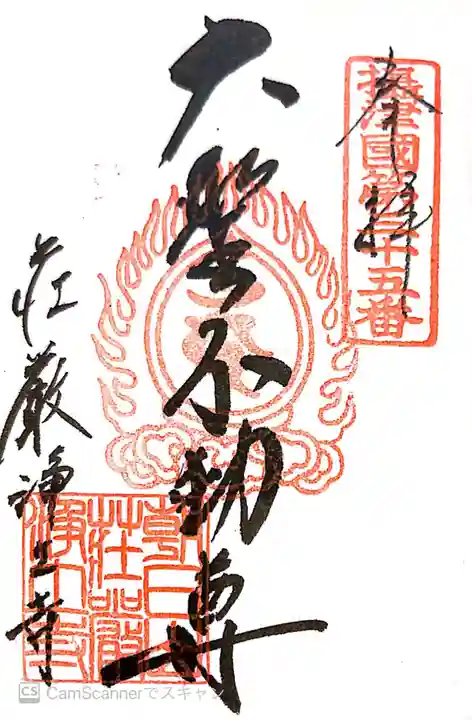 奉拝
摂津國第三十五番
大聖不動尊
荘厳浄土寺
朝日山
荘嚴
浄土寺
CS CamScannerでスキャン